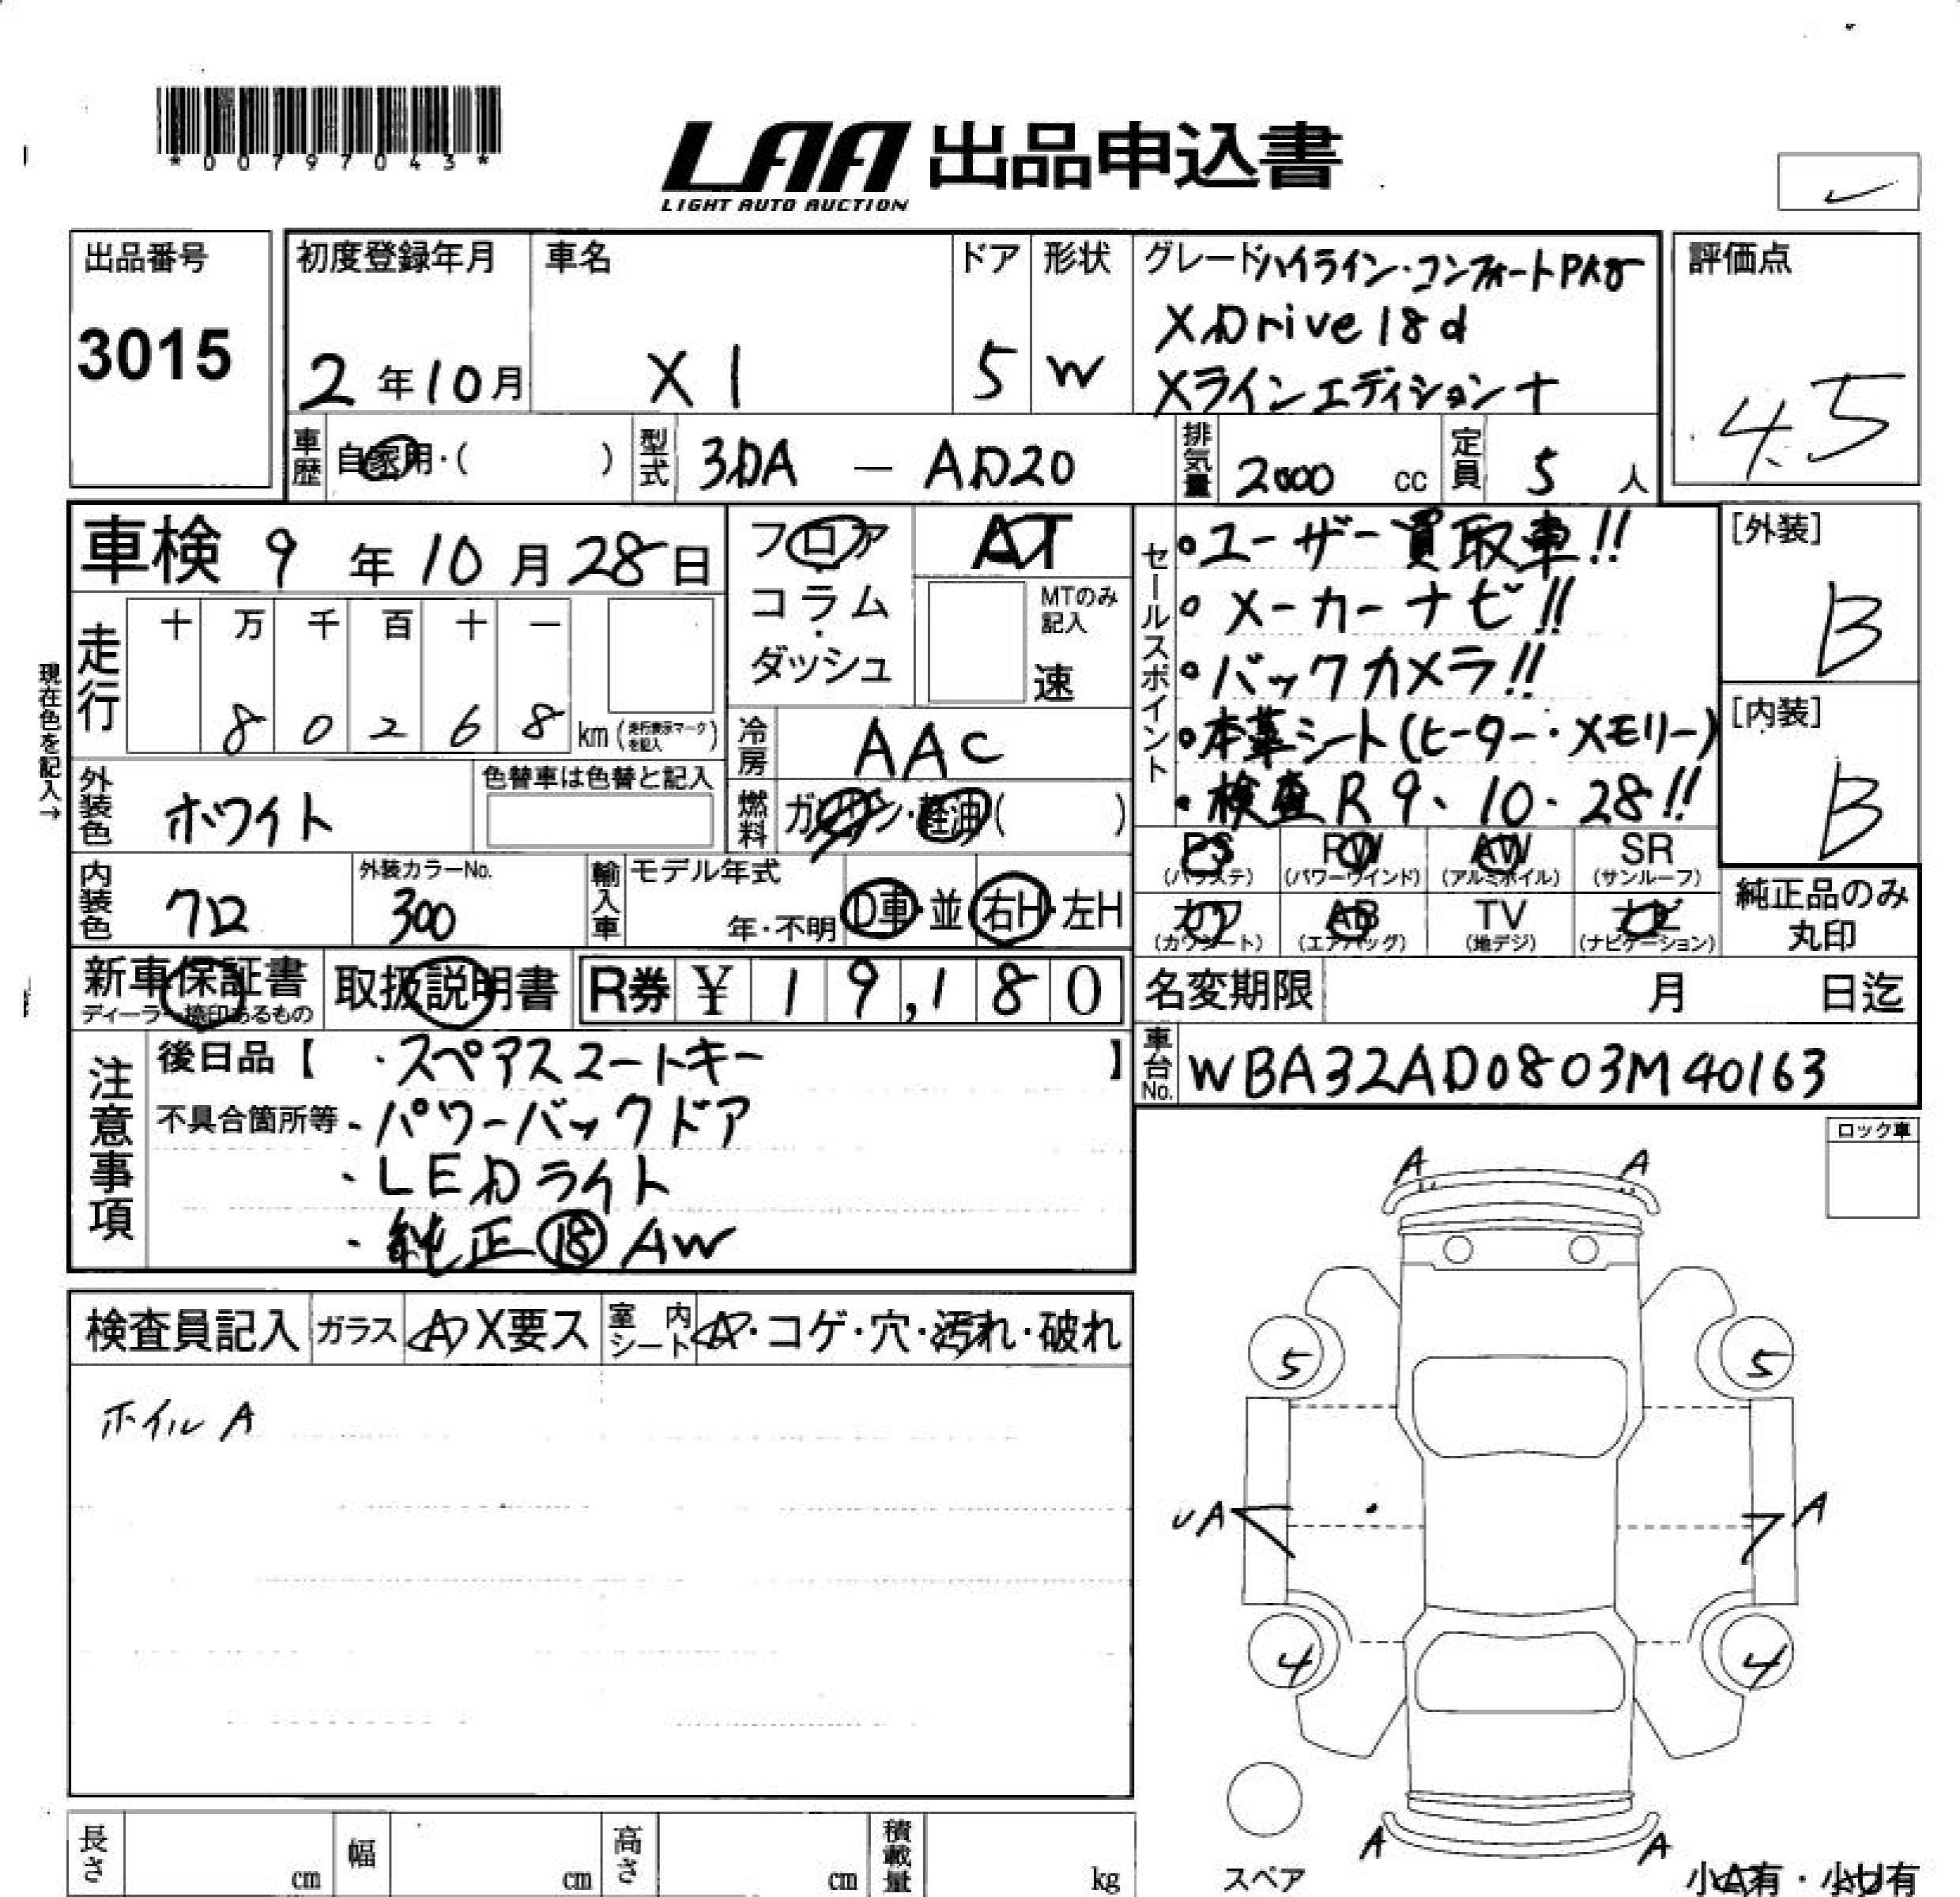 *00797043*
LAA 出品申込書
LIGHT AUTO AUCTION
出品番号
3015
初度登録年月
2年10月
車名
X1
ドア
5
形状
W
グレード ハイライン・コンフォートPKG
XDrive18d
Xラインエディション+
評価点
4.5
車歴
自家用・( )
型式
3DA — AD20
排気量
2000 cc
定員
5 人
車検 9年10月28日
フロア・コラム・ダッシュ
AT
MTのみ記入
速
現在色を記入→
走行
十 万 千 百 十 一
8 0 2 6 8 km (走行表示マークを記入)
冷房
AAC
外装色
ホワイト
色替車は色替と記入
燃料
ガソリン・軽油( )
内装色
クロ
外装カラーNo.
300
輸入車
モデル年式
年・不明
D車・並
右H・左H
セールスポイント
・ユーザー買取車!!
・メーカーナビ!!
・バックカメラ!!
・本革シート(ヒーター・メモリー)
・検査R9、10.28!!
[外装]
B
[内装]
B
PS
(パワステ)
PW
(パワーウインド)
AW
(アルミホイル)
SR
(サンルーフ)
カワ
(カワシート)
AB
(エアバッグ)
TV
(地デジ)
ナビ
(ナビゲーション)
純正品のみ
丸印
新車保証書
ディーラー捺印あるもの
取扱説明書
R券 ¥ 19,180
名変期限 月 日迄
車台No.
WBA32AD0803M40163
注意事項
後日品【 ・スペアスマートキー 】
不具合箇所等 ・パワーバックドア
・LEDライト
・純正⑱AW
ロック車
検査員記入
ガラス
A X要ス
室内シート
A・コゲ・穴・汚れ・破れ
ホイルA
A A
5 5
UA A
4 4
A A
スペア
小A有・小U有
長さ cm
幅 cm
高さ cm
積載量 kg